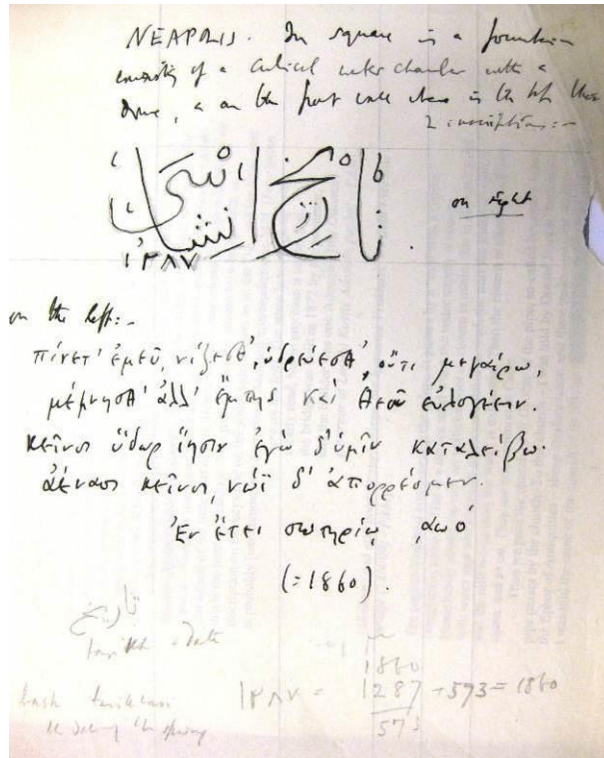 NEAPOLIS. In square is a fountain
consisting of a cubical water chamber with a
dome, & on the front wall
2 inscriptions:-
تاريخ
١٢٨٧
on right
on the left:-
πίνετ' ἐμεῦ, νίζεσθ', ὑδρεύεσθ', οὔτι μεγαίρω,
μέμνησθ' ἀλλ' ἔμπης καὶ θεὸν εὐλογέειν.
κεῖνος ὕδωρ ἵησιν ἐγὼ δ' ὑμῖν καταλείβω·
ἀέναος κεῖνος, νῶϊ δ' ἀπορρέομεν.
Ἐν ἔτει σωτηρίῳ ͵αωό
(=1860).
تاريخ
tarikh = date
1860
١٢٨٧ = 1287 + 573 = 1860
573